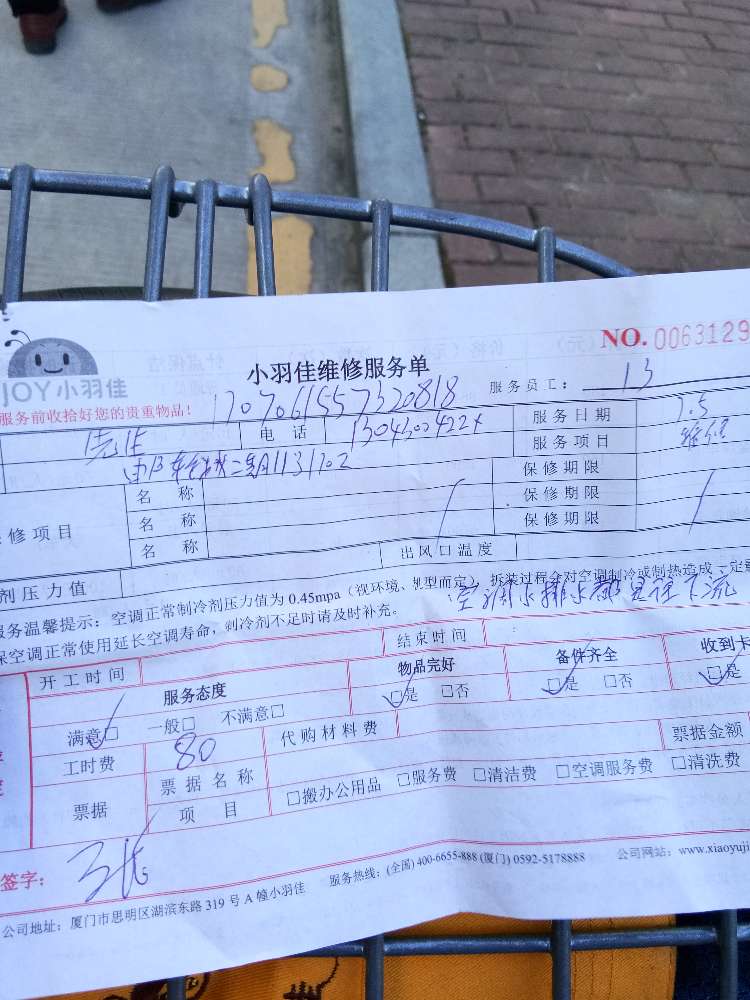 小羽佳维修服务单
NO. 0063129
JOY小羽佳
服务员工： 13
服务前收拾好您的贵重物品!
1707061557320818
电 话
服务日期 7.5
服务项目 维修
保修期限
名 称
保修期限
修项目 名 称
保修期限
名 称
出风口温度
剂压力值
服务温馨提示：空调正常制冷剂压力值为 0.45mpa（视环境、机型而定），拆装过程会对空调制冷或制热造成一定
保空调正常使用延长空调寿命，制冷剂不足时请及时补充。
空调水排水都是往下流
开工时间
结束时间
服务态度
物品完好
备件齐全
收到卡
满意□ 一般□ 不满意□
□是 □否
□是 □否
□是
工时费 80
代购材料费
票据金额
票据
票据名称
项 目
□搬办公用品 □服务费 □清洁费 □空调服务费 □清洗费
签字：
公司地址：厦门市思明区湖滨东路 319 号 A 幢小羽佳 服务热线：(全国) 400-6655-888 (厦门) 0592-5178888 公司网站：www.xiaoyuji